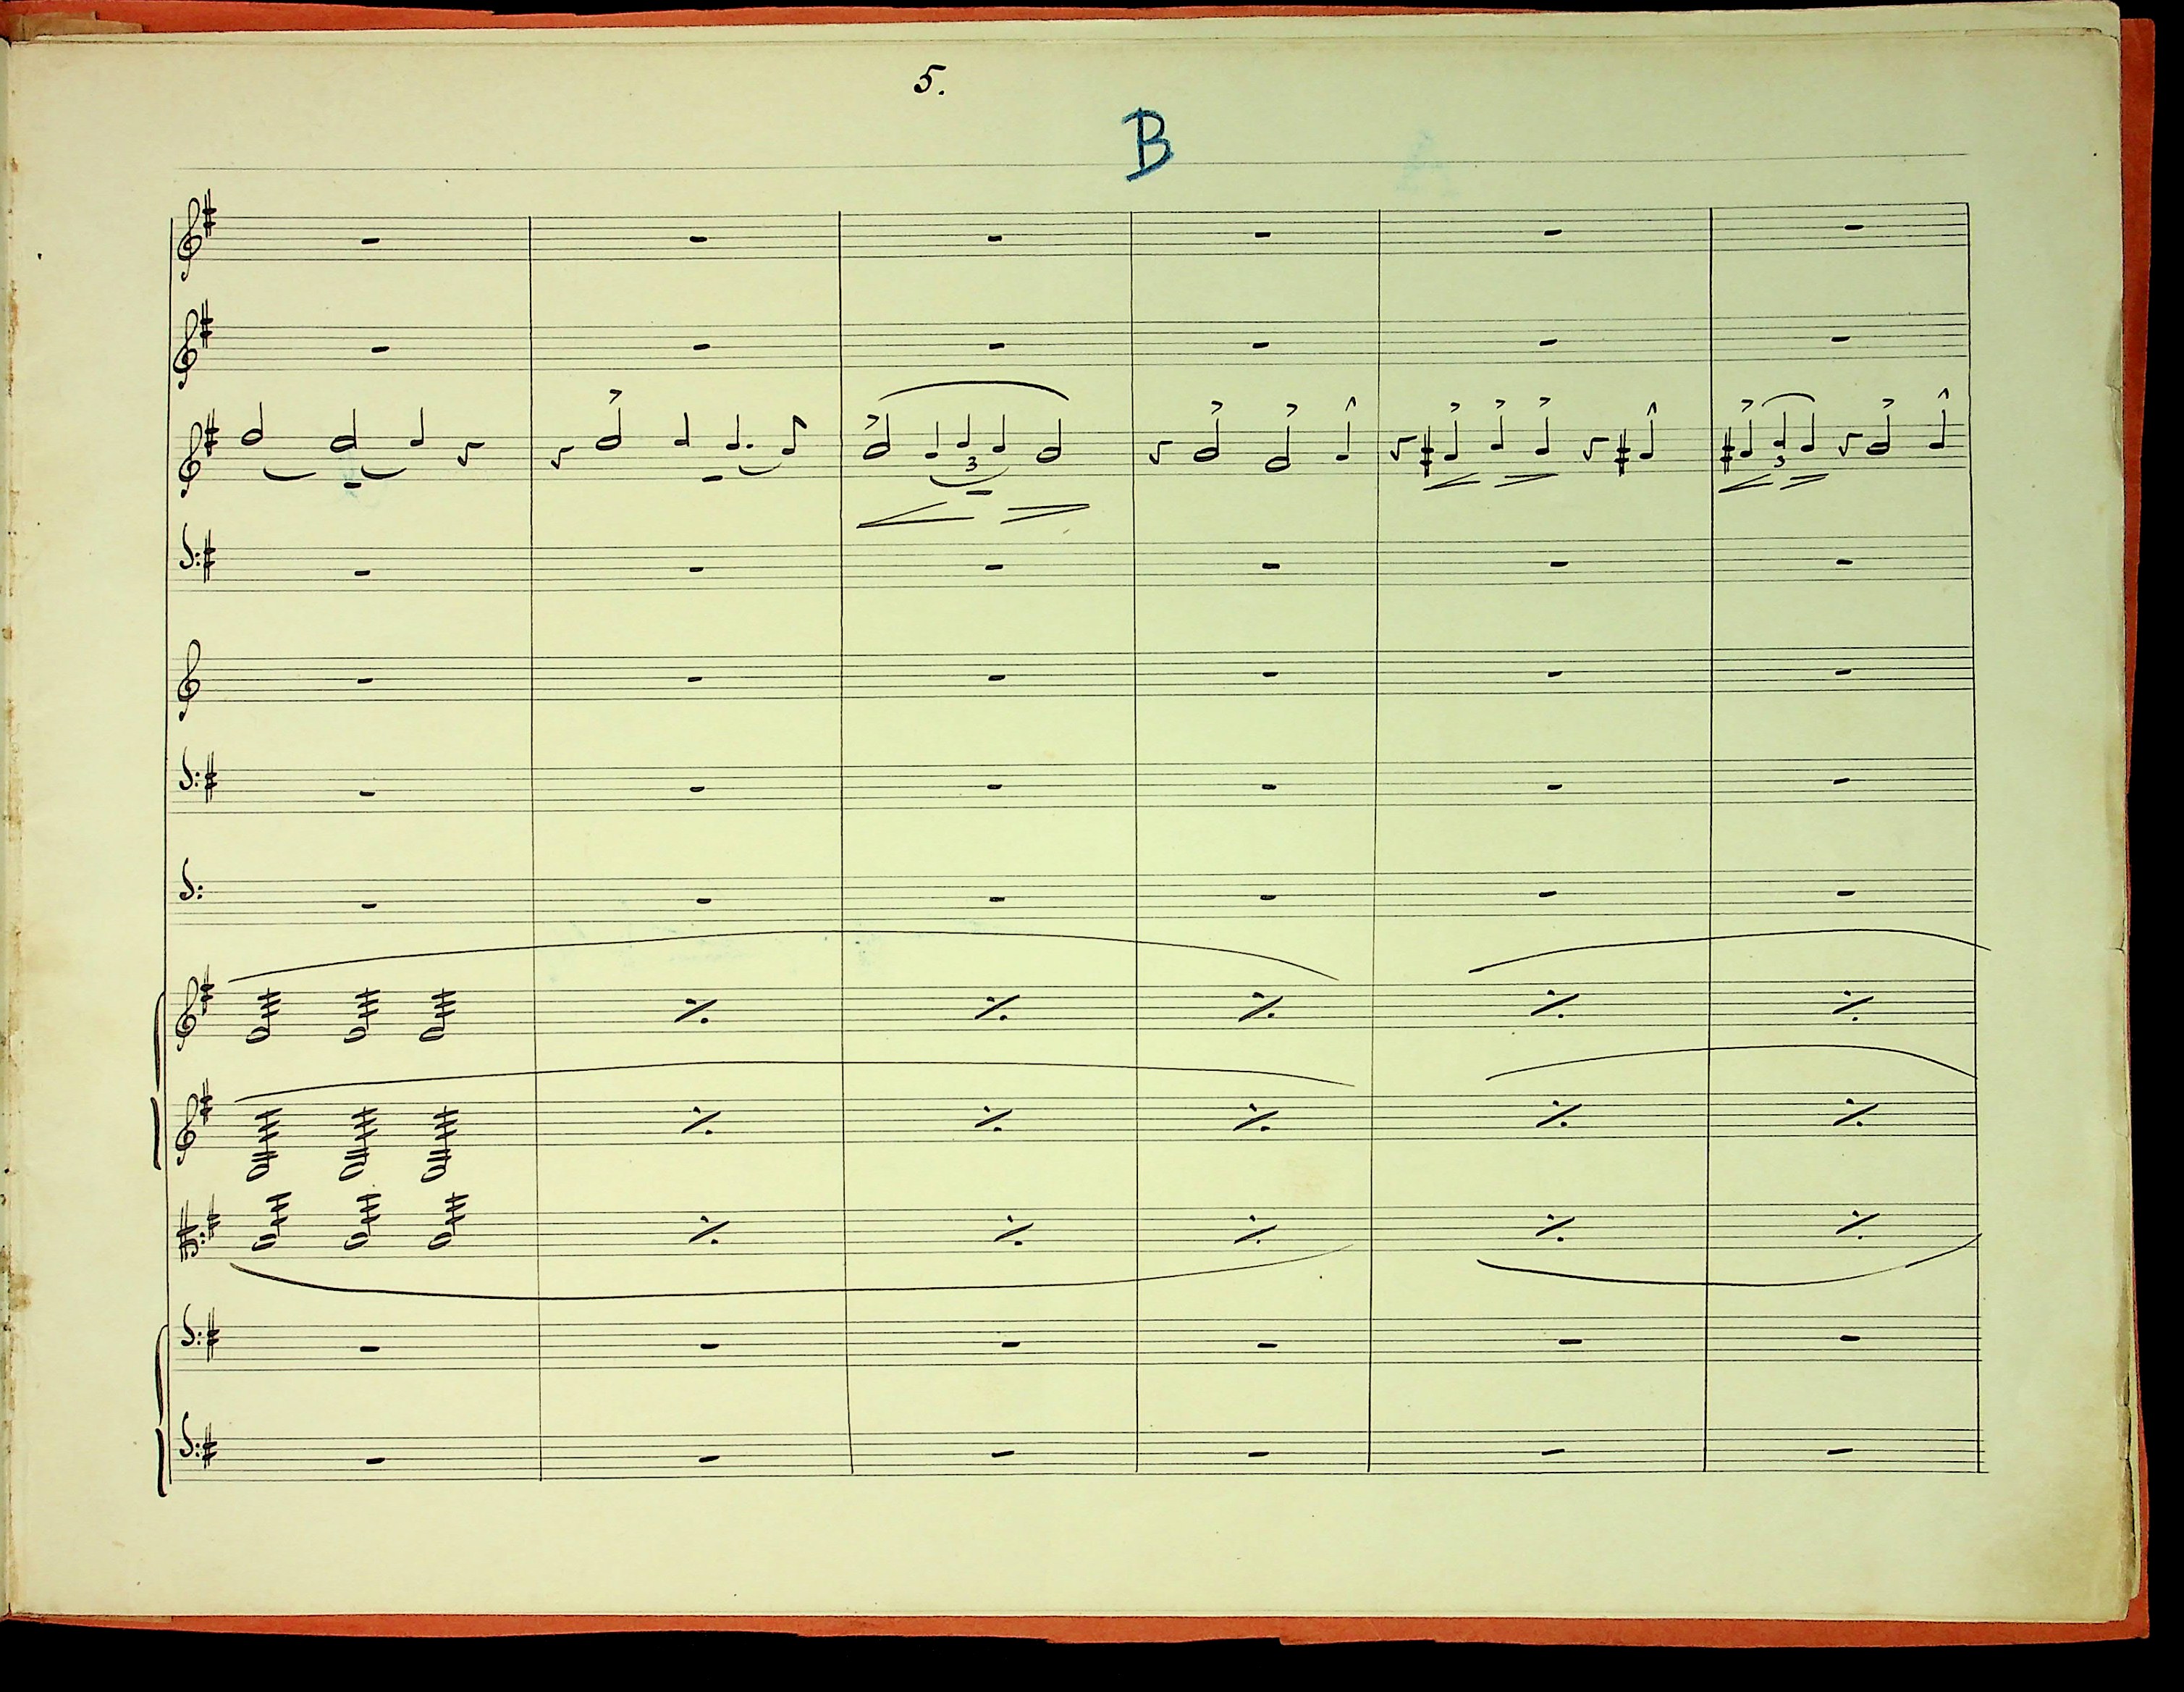 5.
B
3
3